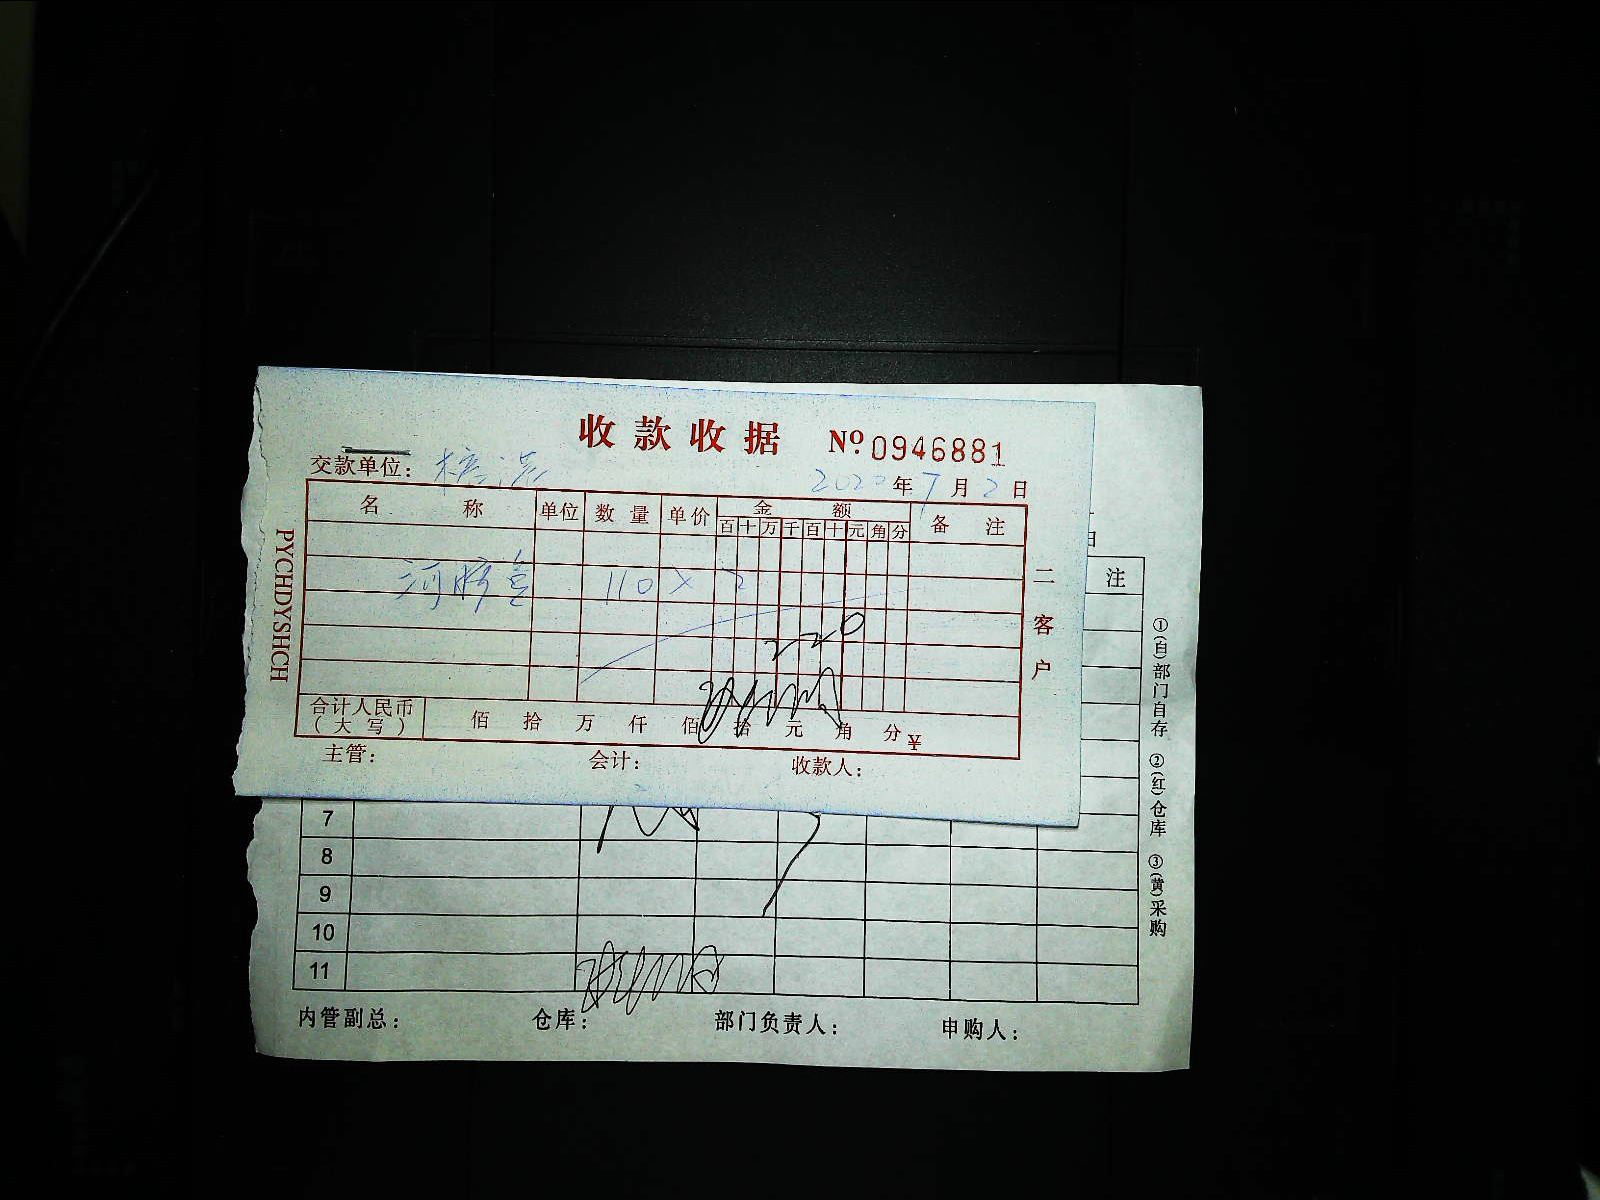 收款收据 Nº 0946881
交款单位: 2020年7月2日
名称 单位 数量 单价 金额 备注
百十万千百十元角分
110 × 2
220
合计人民币(大写) 佰 拾 万 仟 佰 拾 元 角 分 ¥
主管: 会计: 收款人:
二客户
PYCHDYSHCH
日
注
7
8
9
10
11
内管副总: 仓库: 部门负责人: 申购人:
①(自)部门自存 ②(红)仓库 ③(黄)采购